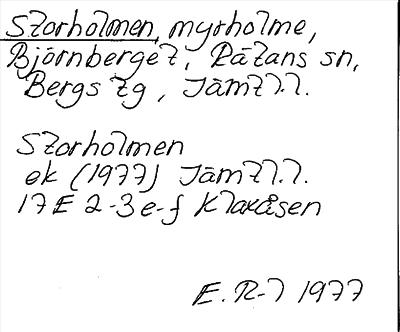 Storholmen, myrholme,
Björnberget, Rätans sn,
Bergs tg, Jämtl.l.
Storholmen
ek (1977) Jämtl.l.
17E 2-3 e-f Klaxåsen
E. R-l 1977